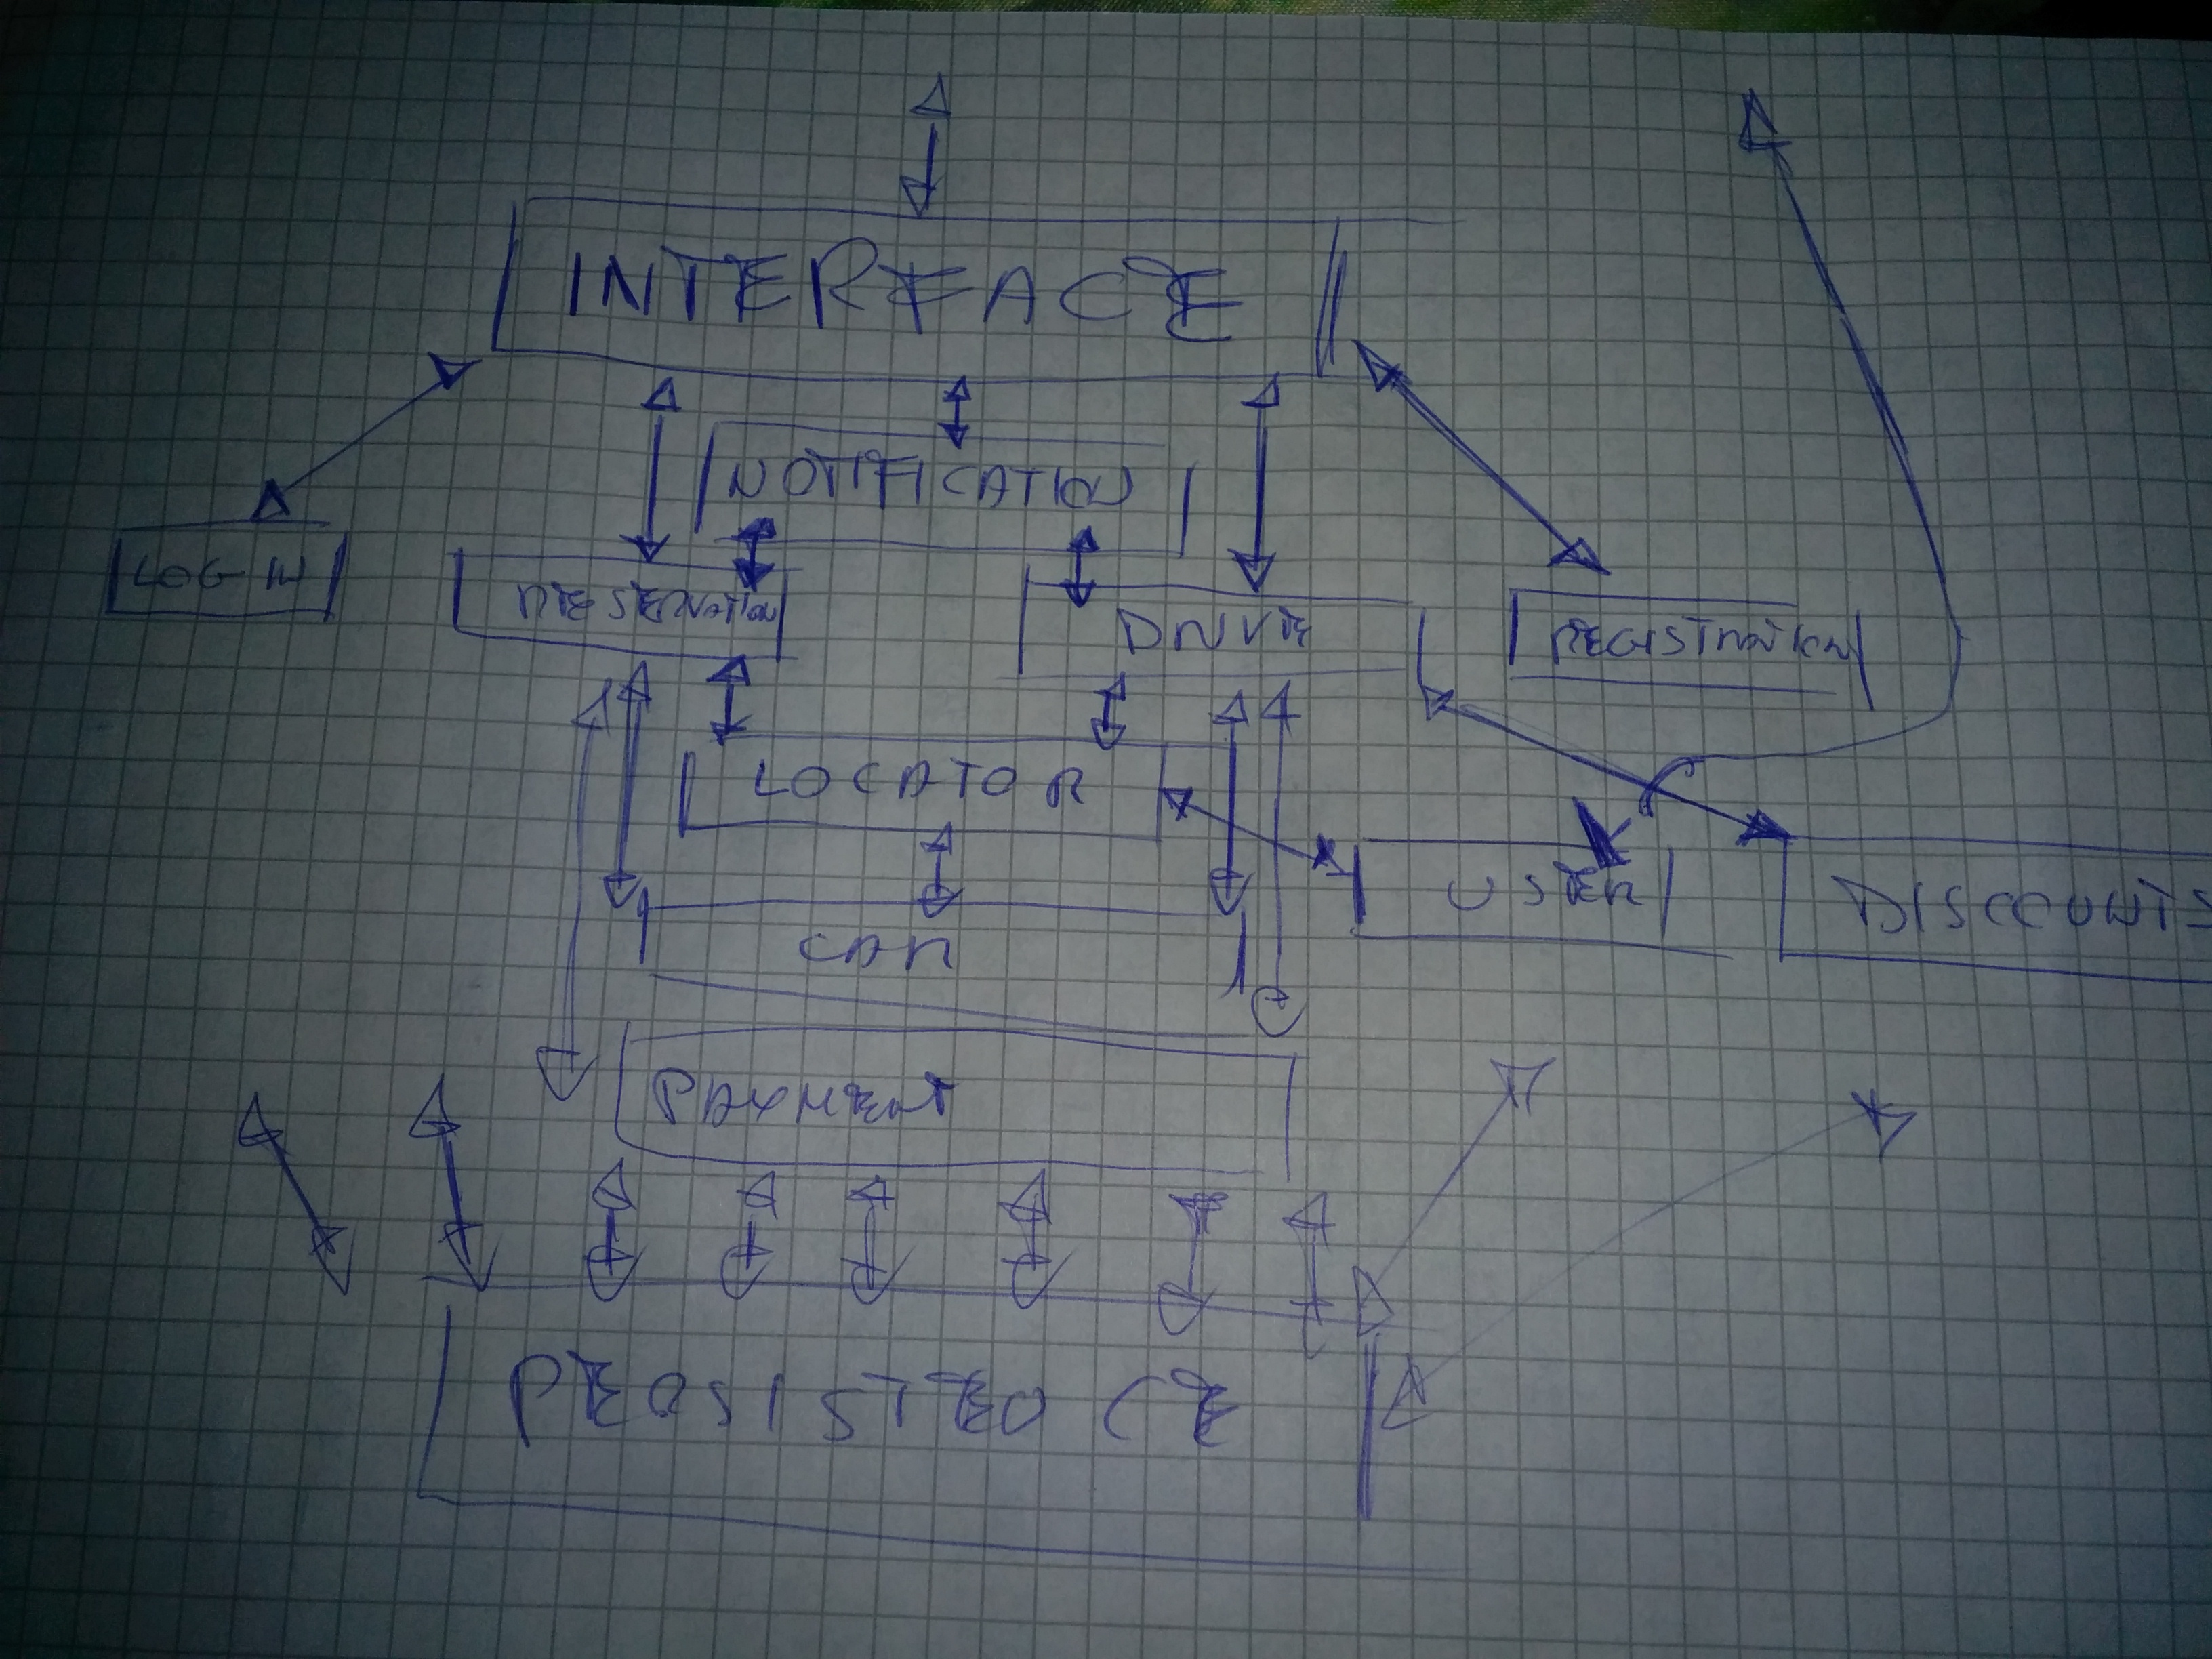 INTERFACE
NOTIFICATION
LOG IN
RESERVATION
DRIVE
REGISTRATION
LOCATOR
USER
DISCOUNTS
CAR
PAYMENT
PERSISTEO CE